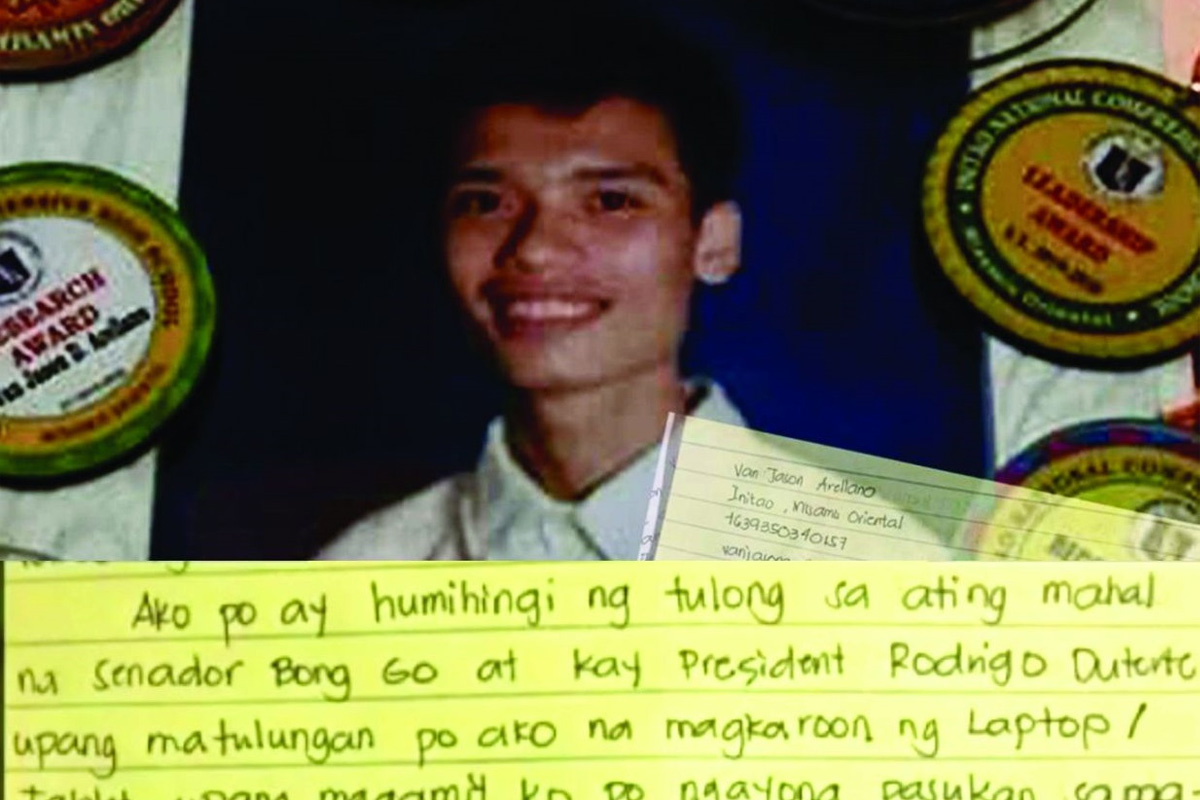 MISAMIS
ESEARCH
AWARD
INITAO NATIONAL COMPREHE
LEADERSHIP
AWARD
Misamis Oriental
Van Jason Arellano
Initao, Misamis Oriental
+639350340157
Ako po ay humihingi ng tulong sa ating mahal
na Senador Bong Go at kay President Rodrigo Duterte
upang matulungan po ako na magkaroon ng Laptop /
upang magamit ko po ngayong pasukan sama-